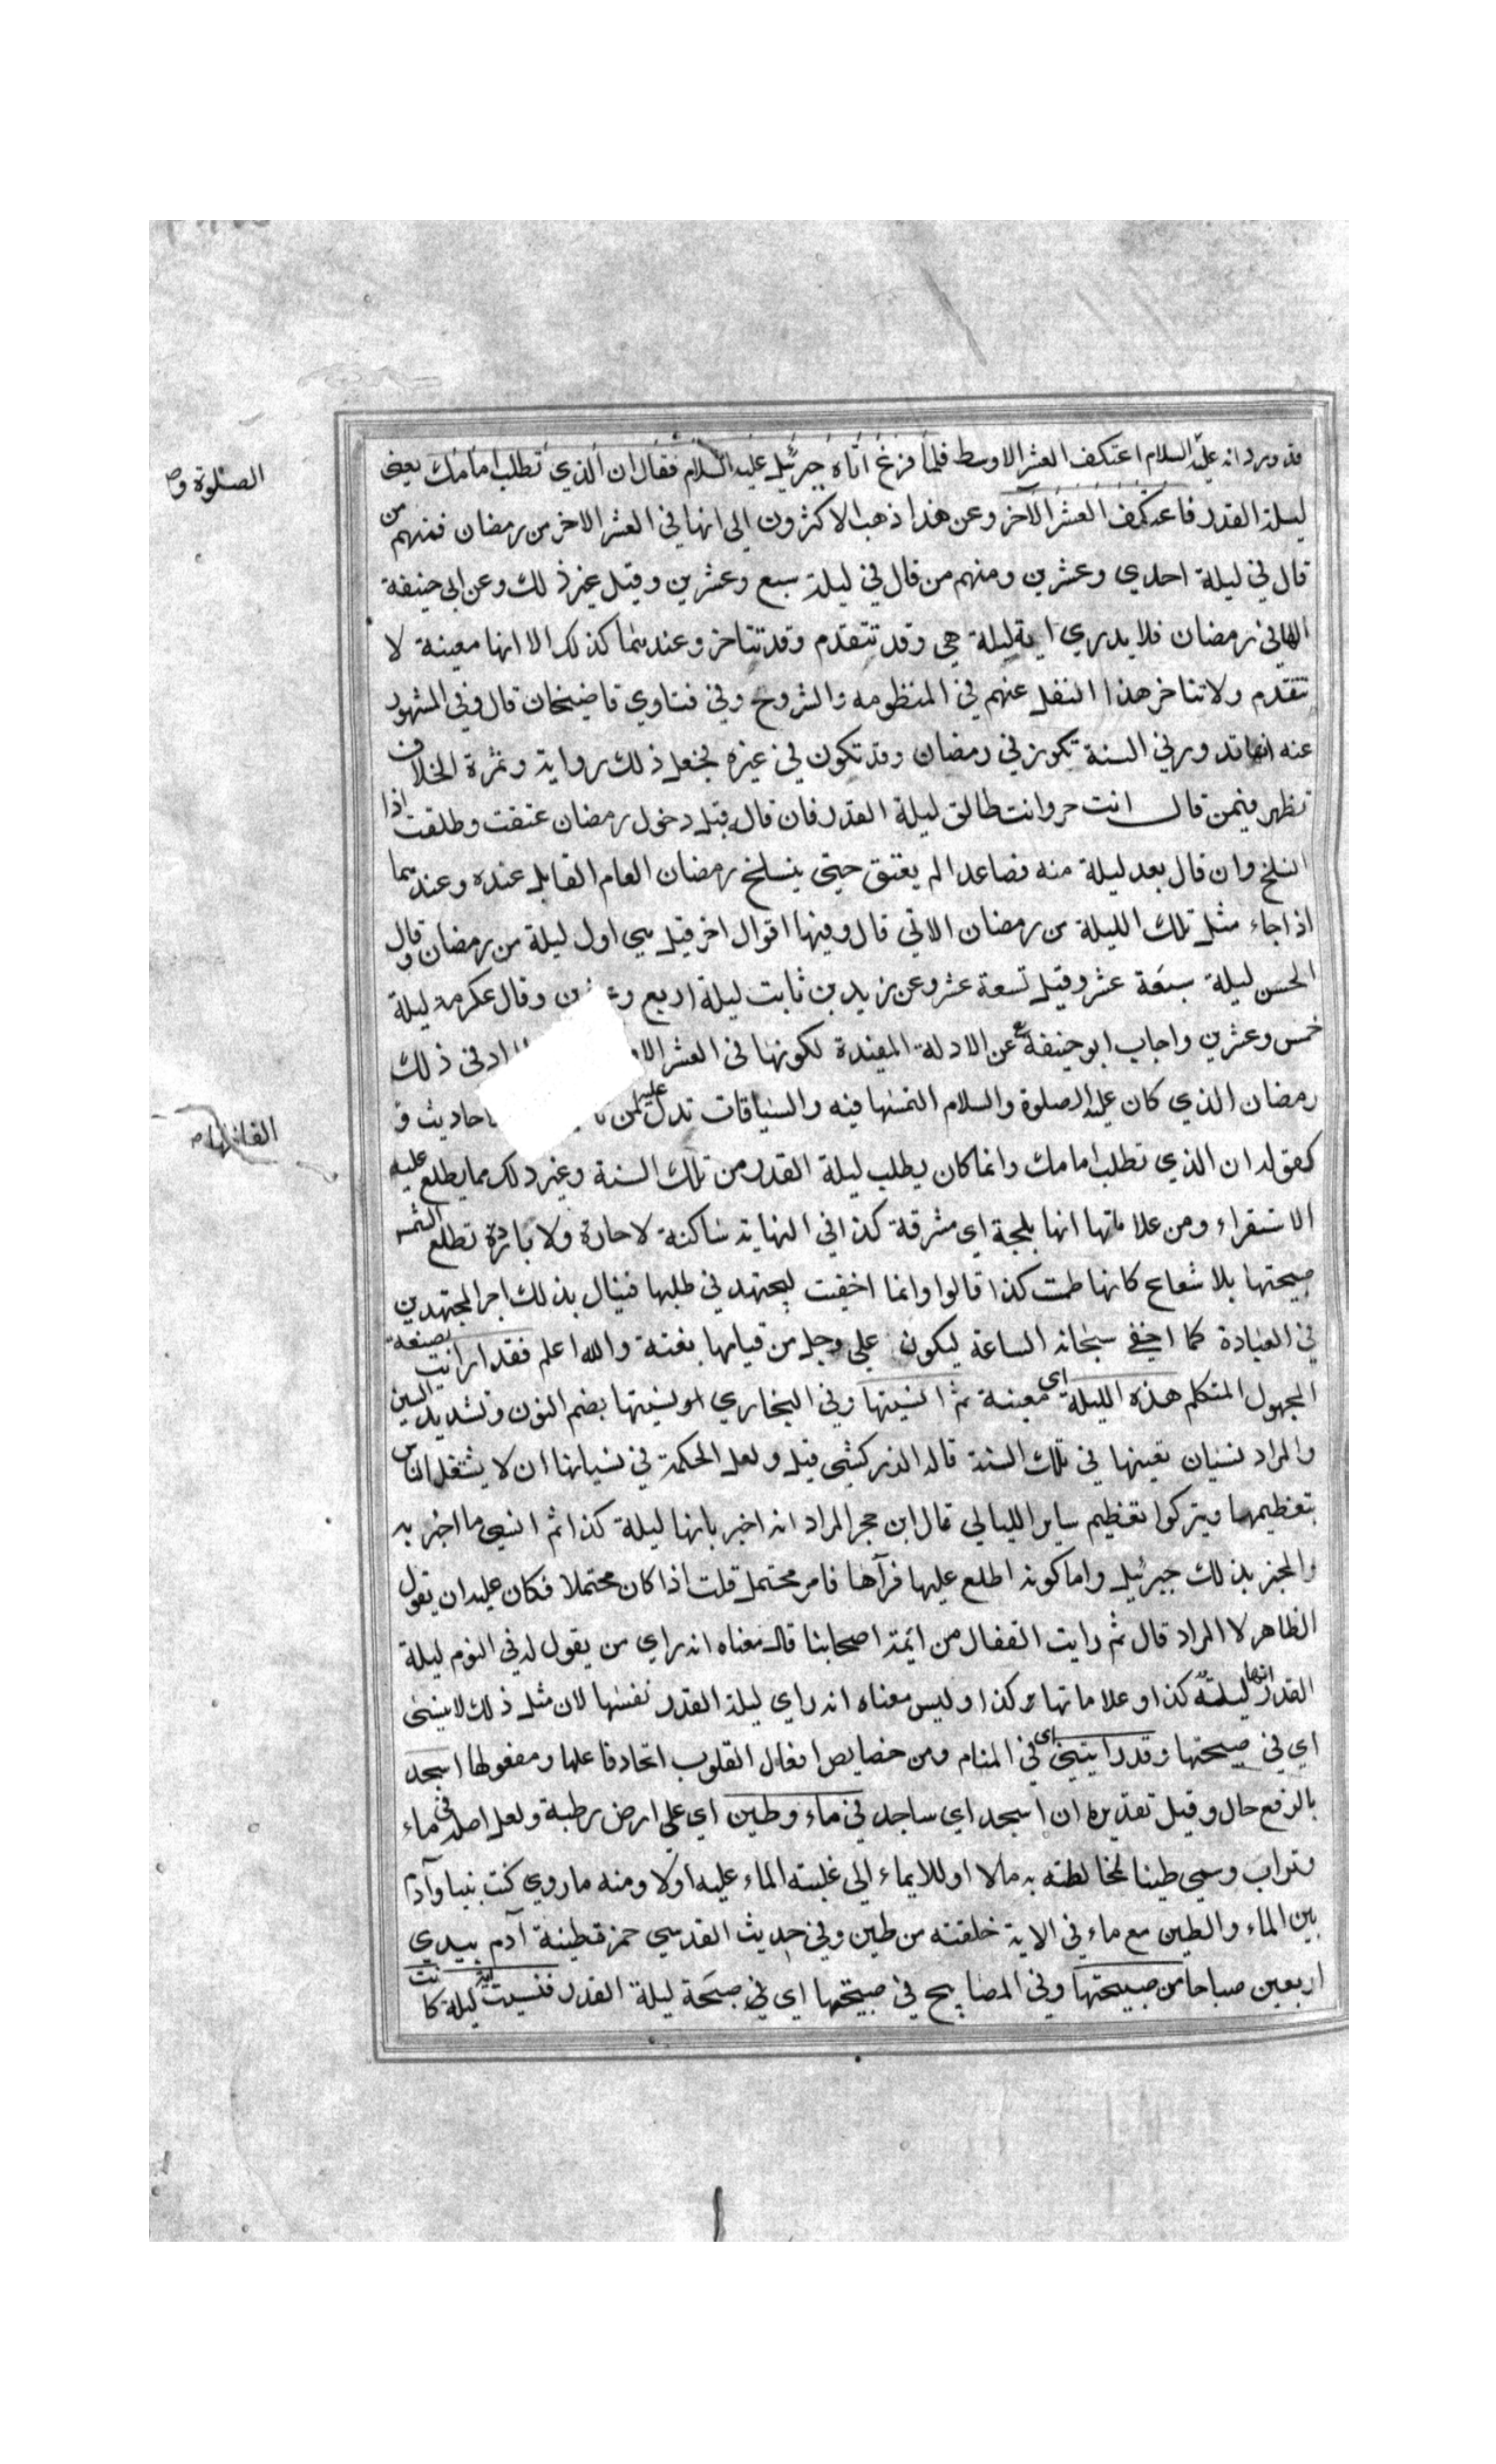 الصلوة و
قد ورد انه عليه السلام اعتكف العشر الاوسط فلما فرغ اتاه جبرئيل عليه السلام فقال ان الذي تطلب امامك يعني
ليلة القدر فاعتكف العشر الآخر وعن هذا ذهب الاكثرون الى انها في العشر الاخر من رمضان فمنهم من
قال في ليلة احدي وعشرين ومنهم من قال في ليلة سبع وعشرين وقيل غير ذلك وعن ابي حنيفة
انها في رمضان فلا يدري اية ليلة هي وقد تتقدم وقد تتاخر وعندهما كذلك الا انها معينة لا
تتقدم ولا تتاخر هذا النقل عنهم في المنظومه والشروح وفي فتاوي قاضيخان قال وفي المشهور
عنه انها تدور في السنة تكون في رمضان وقد تكون في غيره فجعل ذلك رواية وثمرة الخلاف
تظهر فيمن قال انت حر وانت طالق ليلة القدر فان قال قبل دخول رمضان عتقت وطلقت اذا
انسلخ وان قال بعد ليلة منه فصاعدا لم يعتق حتى ينسلخ رمضان العام القابل عنده وعندهما
اذا جاء مثل تلك الليلة من رمضان الاتي قال وفيها اقوال اخر قيل هي اول ليلة من رمضان وقال
الحسن ليلة سبعة عشر وقيل تسعة عشر وعن زيد بن ثابت ليلة اربع وقال عكرمة ليلة
خمس وعشرين واجاب ابو حنيفة عن الادلة المفيدة لكونها في العشر في ذلك
رمضان الذي كان عليه الصلوة والسلام التمسها فيه والسياقات تدل عليه لمن احاديث و
كقوله ان الذي تطلب امامك وانما كان يطلب ليلة القدر من تلك السنة وغير ذلك مما يطلع عليه
الاستقراء ومن علاماتها انها بلجة اي مشرقة كذا في النهاية ساكنة لا حارة ولا باردة تطلع الشمس
صبيحتها بلا شعاع كانها طست كذا قالوا وانما اخفيت ليجتهد في طلبها فينال بذلك اجر المجتهدين
في العبادة كما اخفي سبحانه الساعة ليكون علي وجل من قيامها بغتة والله اعلم فقد ارانيت بصيغة
المجهول المتكلم هذه الليلة اي معينة ثم انسيتها وفي البخاري او نسيتها بضم النون وتشديد السين
والمراد نسيان تعيينها في تلك السنة قاله الزركشي قيل ولعل الحكمة في نسيانها ان لا يشتغل الناس
بتعظيمها ويتركوا تعظيم ساير الليالي قال ابن حجر المراد انه اخبر بانها ليلة كذا ثم انسي ما اخبر به
والمخبر بذلك جبرئيل واما كونه اطلع عليها فرآها فامر محتمل قلت اذا كان محتملا فكان عليه ان يقول
الظاهر لا المراد قال ثم رايت القفال من ائمة اصحابنا قال معناه انه راي من يقول له في النوم ليلة
القدر انها ليلة كذا وعلاماتها كذا وليس معناه انه راي ليلة القدر نفسها لان مثل ذلك لا ينسى
اي في صبيحتها وقد رايتني اي في المنام ومن خصايص افعال القلوب اتحاد فاعلها ومفعولها اسجد
بالرفع حال وقيل تقديره ان اسجد اي ساجد في ماء وطين اي علي ارض رطبة ولعل اصله في ماء
وتراب وسمي طينا لمخالطته به مالا او للايماء الي غلبته الماء عليه اولا ومنه ما روي كنت نبيا وآدم
بين الماء والطين مع ماء في الاية خلقته من طين وفي حديث القدسي خمرت طينة آدم بيدي
اربعين صباحا من صبيحتها وفي المصابيح في صبيحتها اي في صبيحة ليلة القدر فنسيت اية ليلة كانت